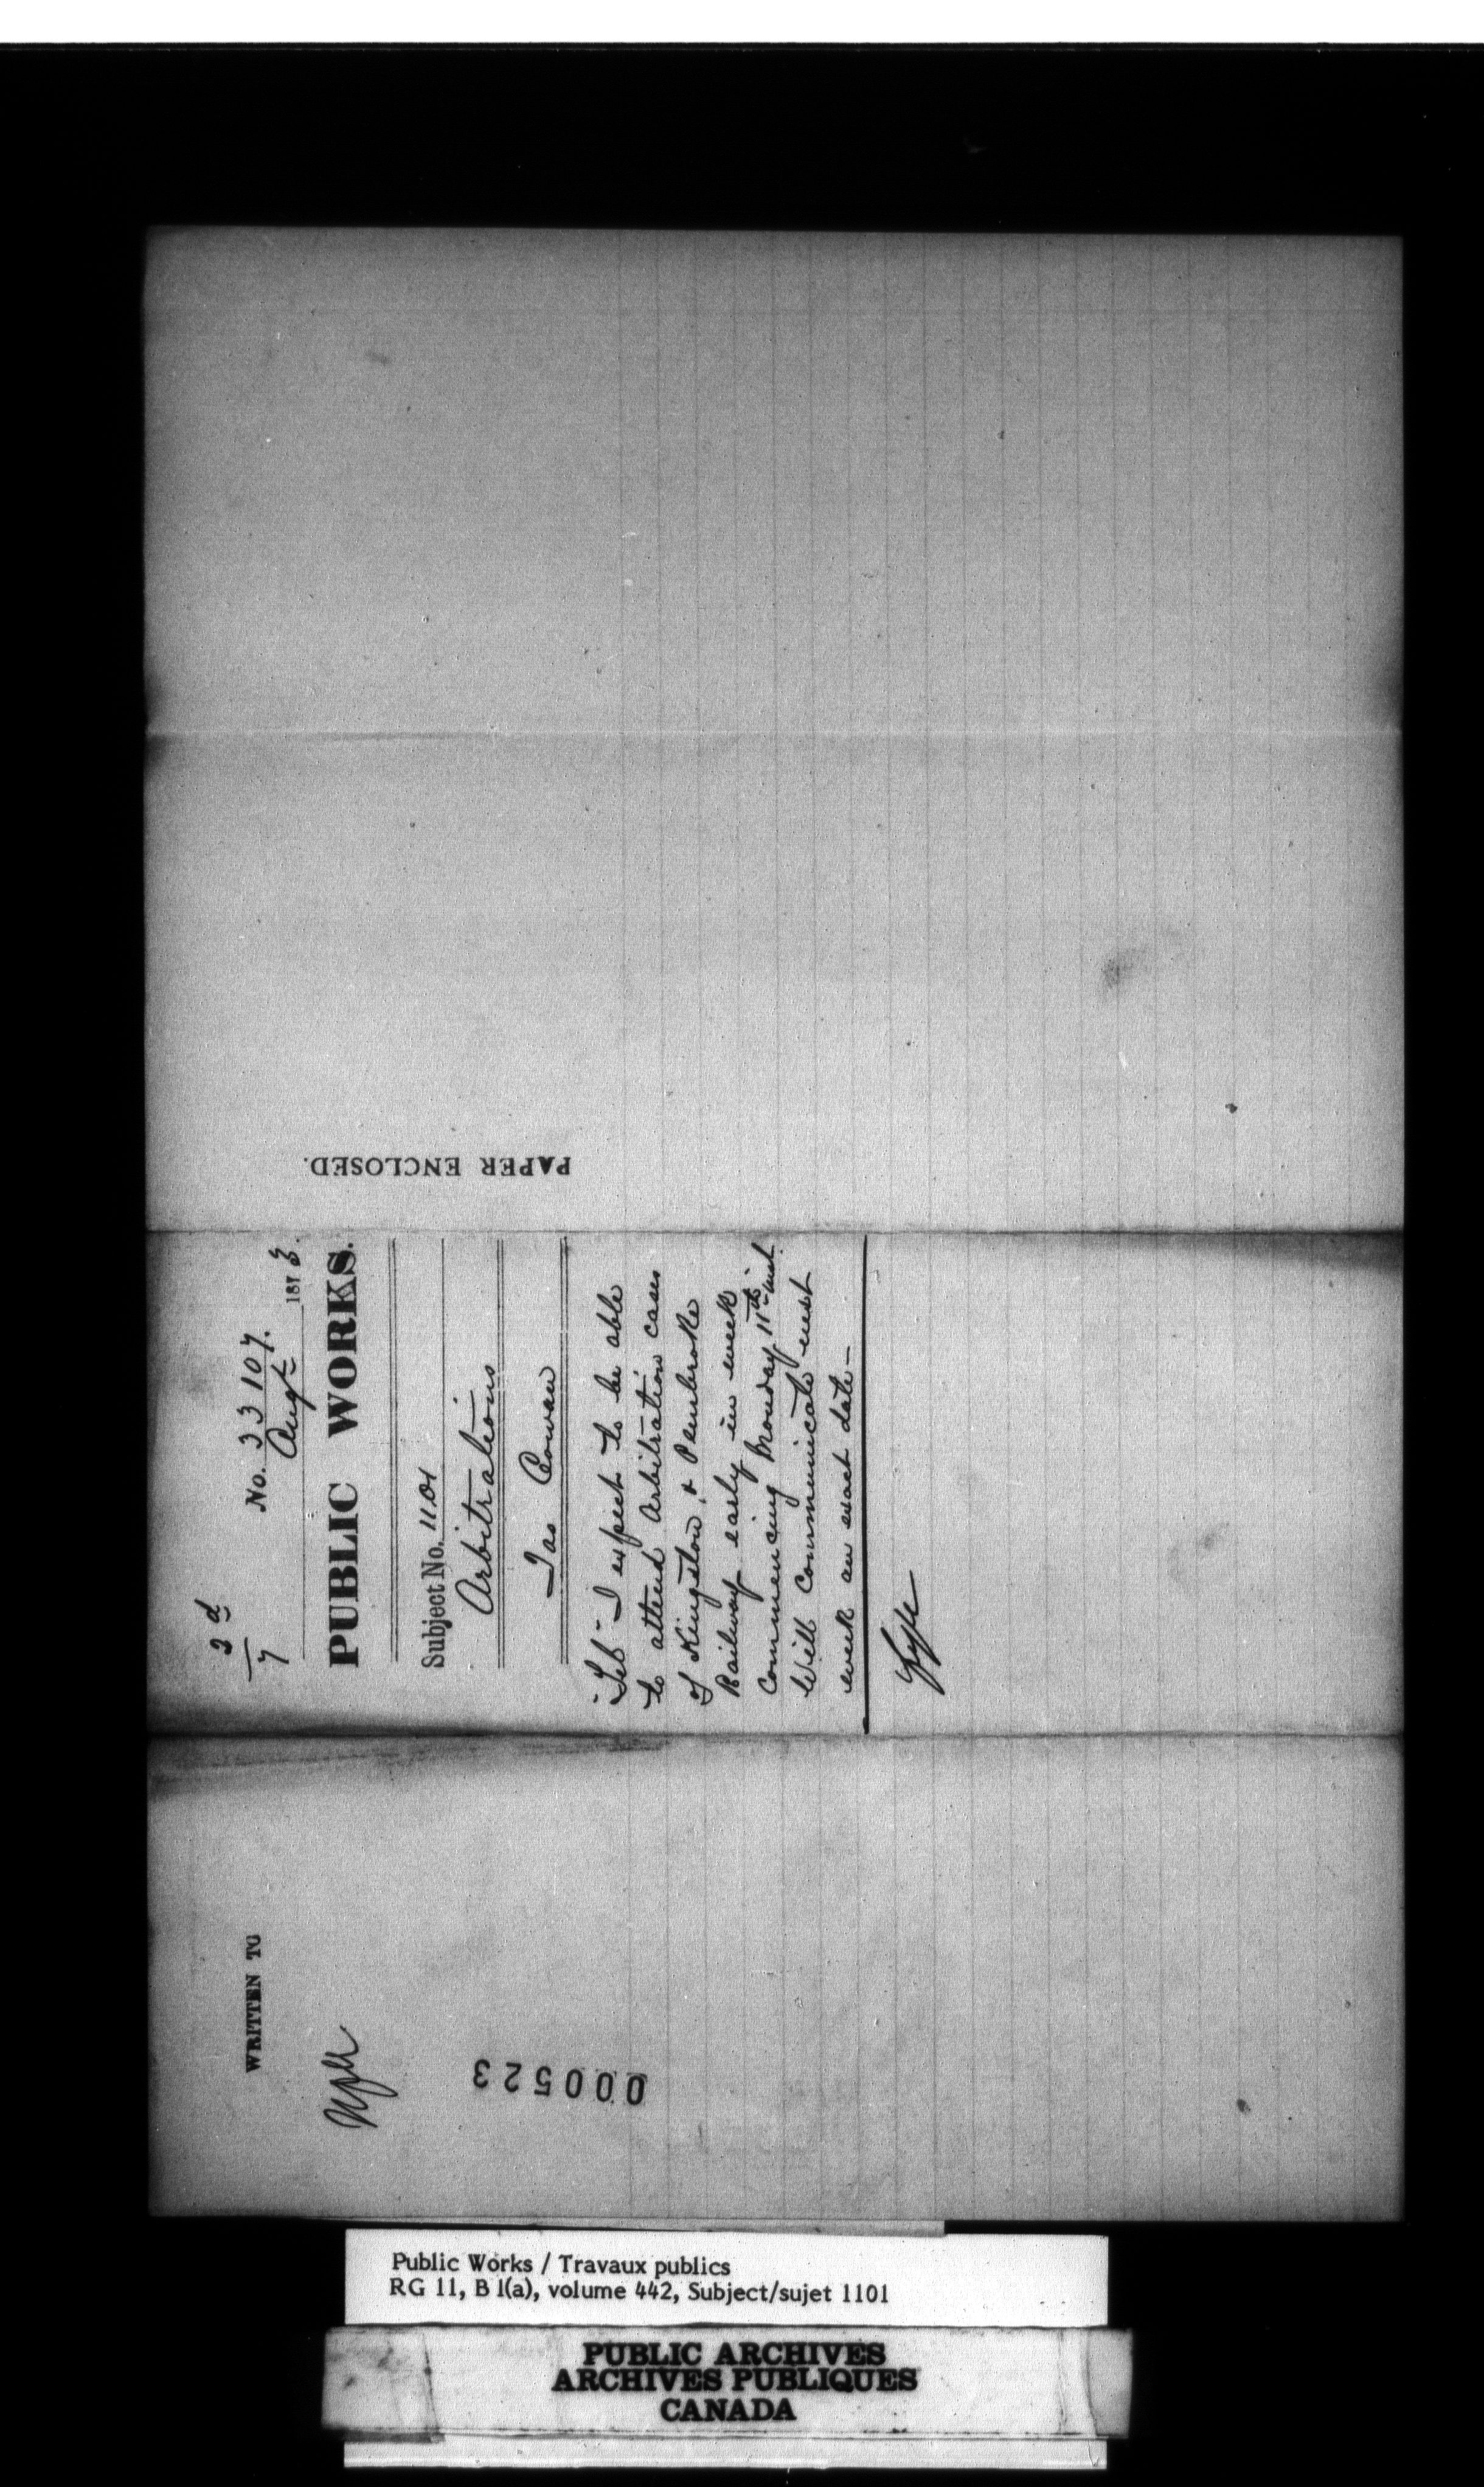 PAPER ENCLOSED.
2d
7
No. 33107.
Augt 1873.
PUBLIC WORKS.
Subject No. 1101
Arbitrations
Jas Cowan
"Tel" I expect to be able
to attend Arbitration cases
of Kingston, & Pembroke
Railway early in week
Commencing Monday 11th inst.
Will communicate next
week an exact date—
WRITTEN TO
000523
Public Works / Travaux publics
RG 11, B 1(a), volume 442, Subject/sujet 1101
PUBLIC ARCHIVES
ARCHIVES PUBLIQUES
CANADA